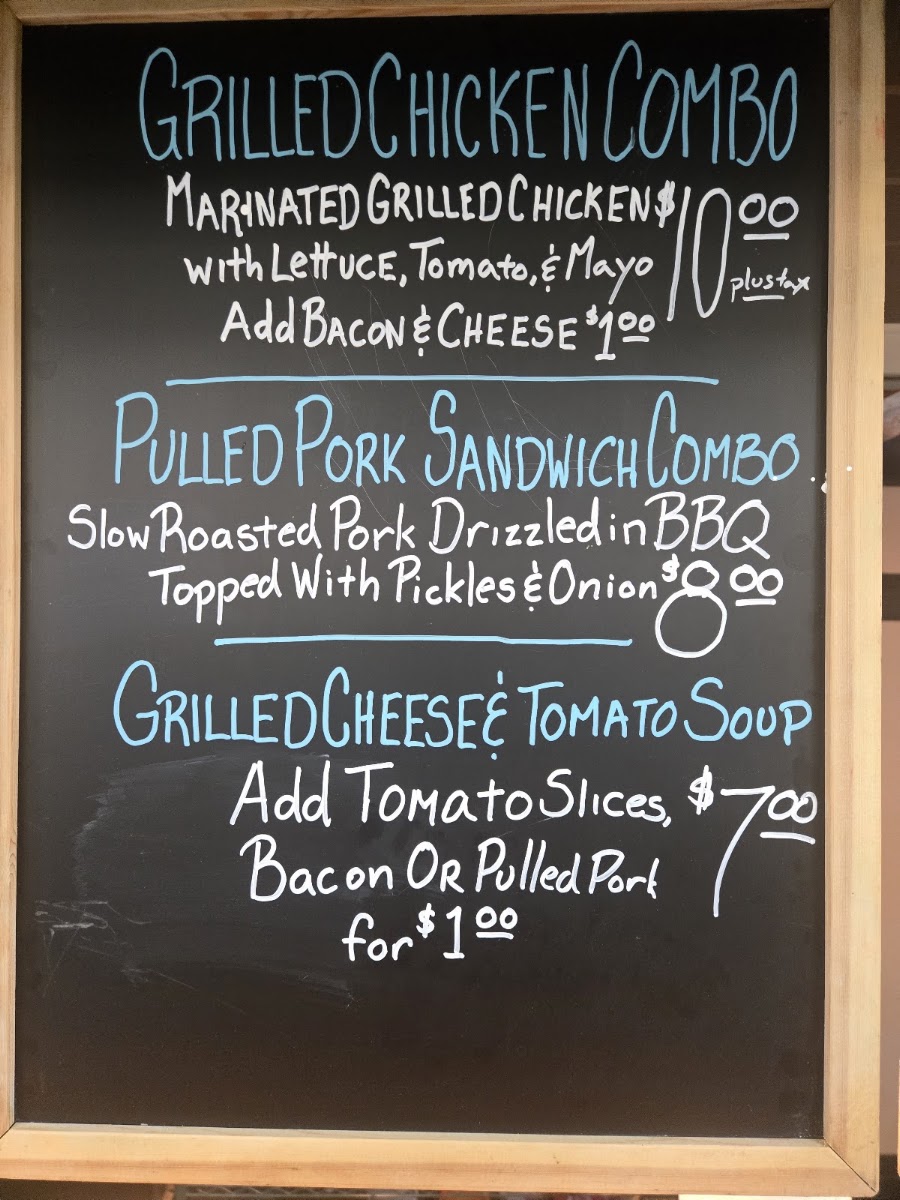 GRILLED CHICKEN COMBO
MARINATED GRILLED CHICKEN $10.00
with LETTUCE, Tomato, & Mayo plus tax
Add BACON & CHEESE $1.00
PULLED PORK SANDWICH COMBO
Slow Roasted Pork Drizzled in BBQ
Topped With Pickles & Onion $8.00
GRILLED CHEESE & TOMATO SOUP
Add Tomato Slices, $7.00
Bacon OR Pulled Pork
for $1.00